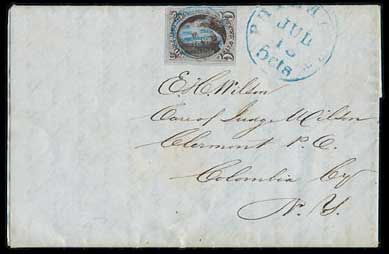 JUL
15
5cts
E. C. Wilson
Care of Judge Wilson
Clermont P.O.
Colombia Cy
N. Y.